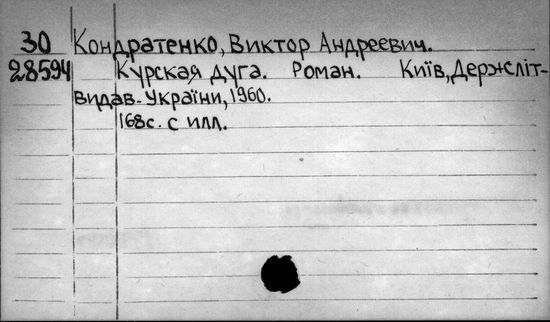 30 Кондратенко, Виктор Андреевич.
28594 Курская дуга. Роман. Київ, Держсліт-
видав- України, 1960.
168с. с илл.